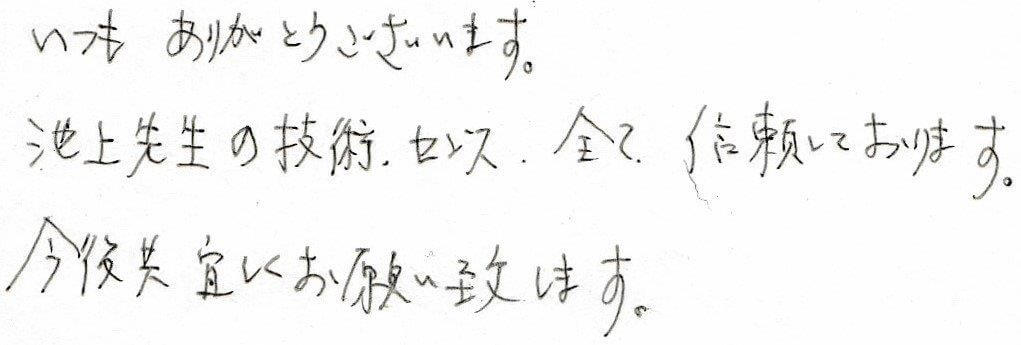 いつも ありがとうございます。
池上先生の技術、センス、全て信頼しております。
今後共 宜しくお願い致します。